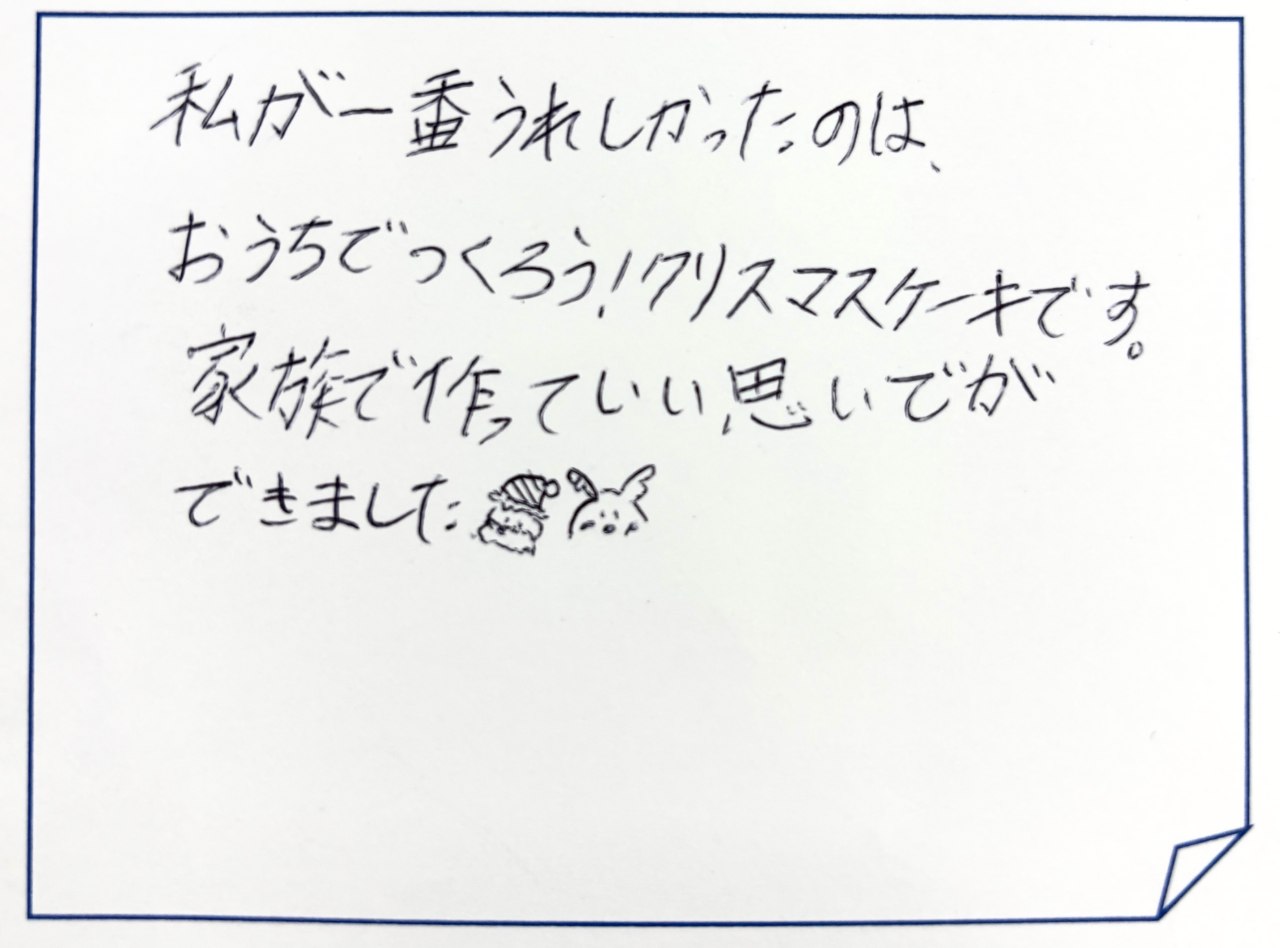 私が一番うれしかったのは、
おうちでつくろう!クリスマスケーキです。
家族で作っていい思いでが
できました